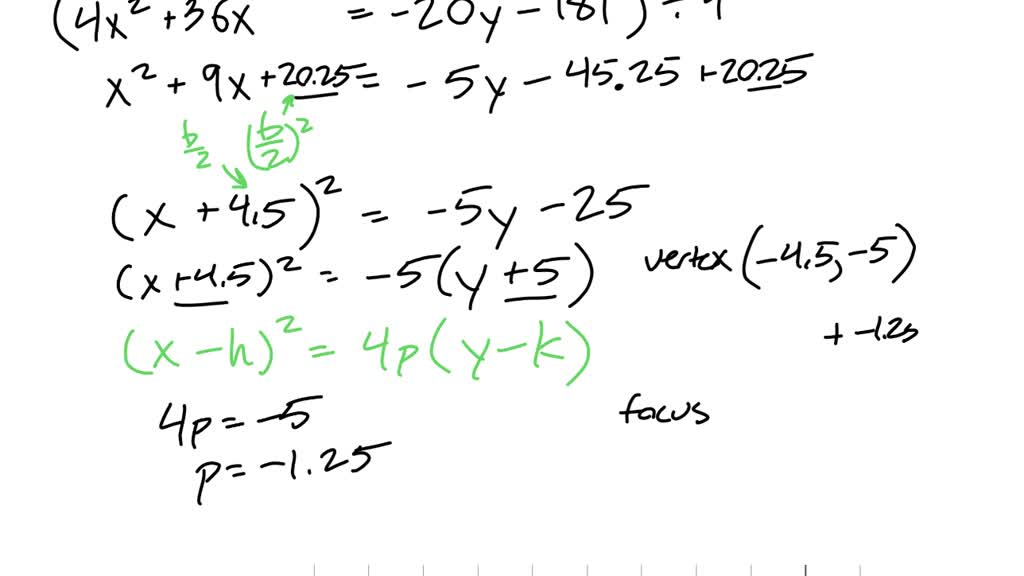 (4x² + 36x = -20y - 181) ÷ 4
x² + 9x + 20.25 = - 5y - 45.25 + 20.25
b/2 (b/2)²
(x + 4.5)² = -5y - 25
(x + 4.5)² = -5(y + 5) vertex (-4.5, -5)
+ -1.25
(x - h)² = 4p(y - k)
4p = -5 focus
p = -1.25